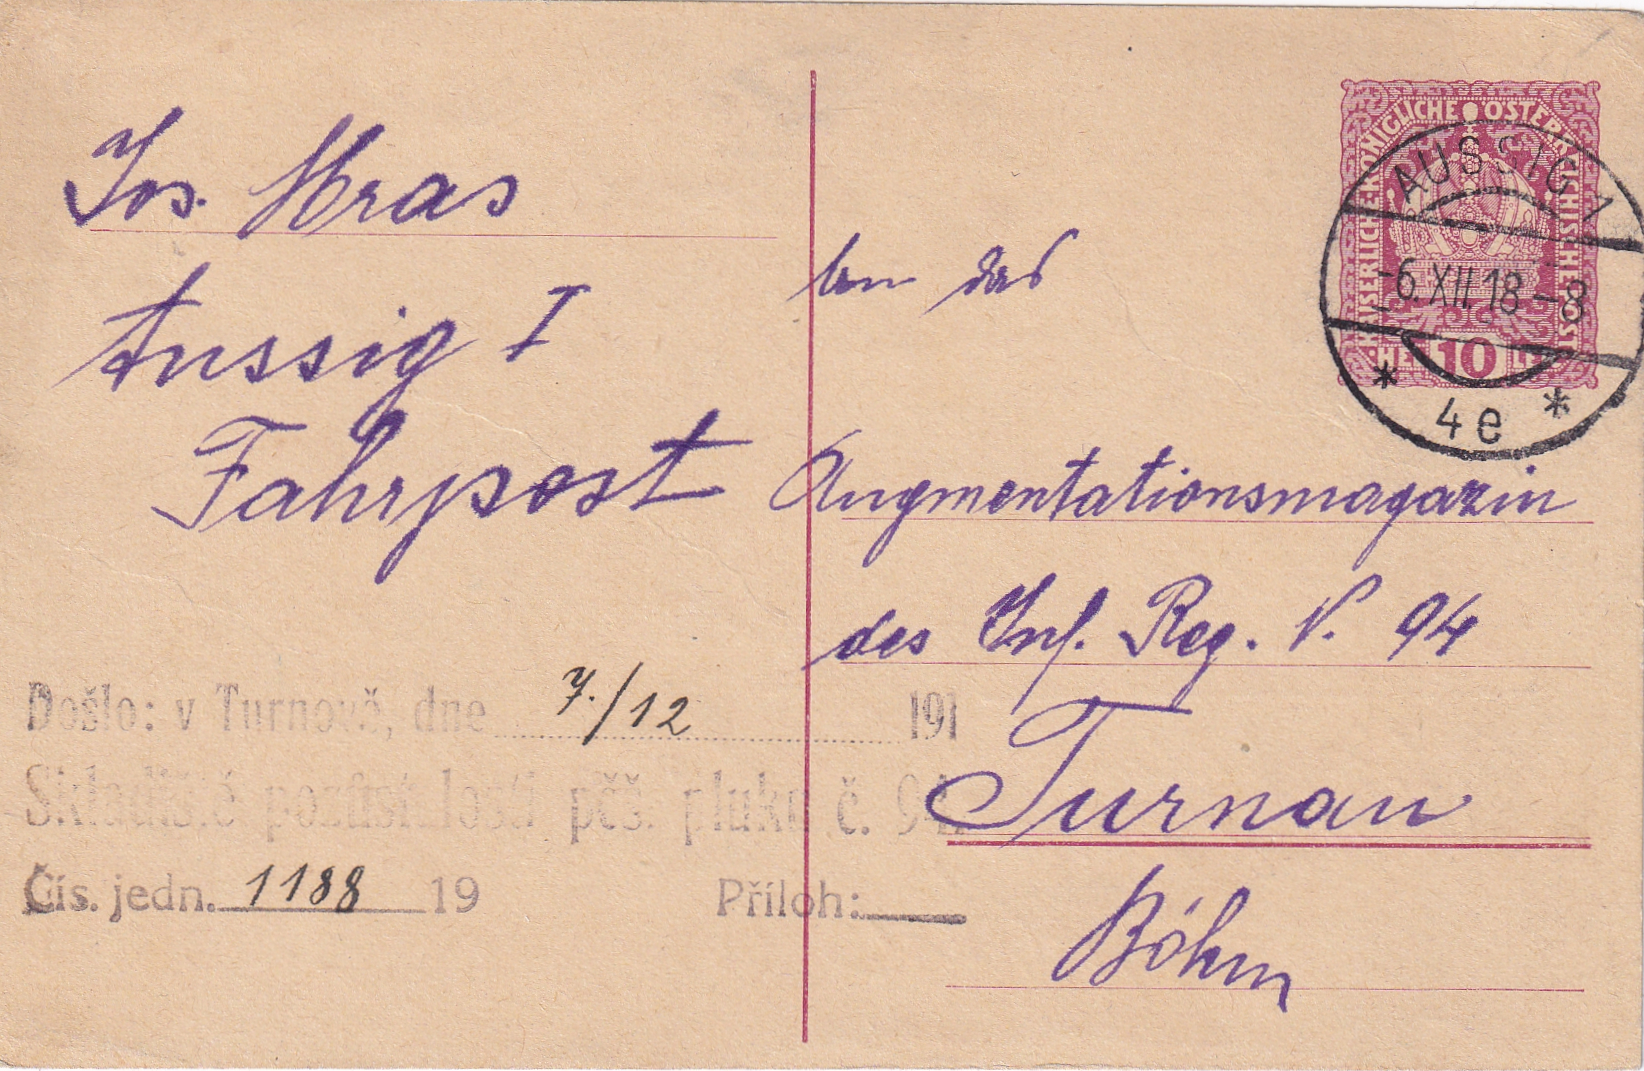 Jos. Hras
Aussig I
Fahrpost
An das
Augmentationsmagazin
des Inf. Reg. N. 94
Turnau
Böhm
KAISERLICHE KÖNIGLICHE ÖSTERREICHISCHE POST
10
AUSSIG 1
-6.XII.18-8
* 4e *
Došlo: v Turnově, dne 7./12 191
Skladiště pozůstalosti pěš. pluku č. 94.
Čís. jedn. 1188 19 Příloh: